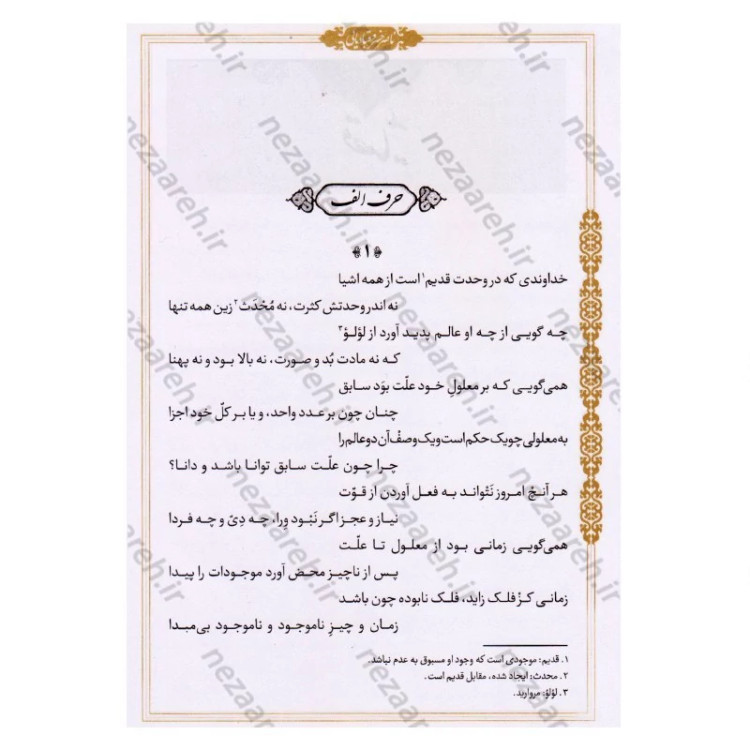 ناصر خسرو قبادیانی
حرف الف
﴿۱﴾
خداوندی که در وحدت قدیم۱ است از همه اشیا
نه اندر وحدتش کثرت، نه مُحْدَث۲ زین همه تنها
چه گویی از چه او عالم پدید آورد از لؤلؤ۳
که نه مادت بُد و صورت، نه بالا بود و نه پهنا
همی‌گویی که بر معلولِ خود علّت بوَد سابق
چنان چون بر عدد واحد، و یا بر کلّ خود اجزا
به معلولی چو یک حکم است و یک وصفْ آن دو عالم را
چرا چون علّت سابق توانا باشد و دانا؟
هر آنچْ امروز نَتْواند به فعل آوردن از قوّت
نیاز و عجز اگر نَبْود وِرا، چه دِیّ و چه فردا
همی‌گویی زمانی بود از معلول تا علّت
پس از ناچیز محض آورد موجودات را پیدا
زمانی کزْ فلک زاید، فلک نابوده چون باشد
زمان و چیزِ ناموجود و ناموجود بی‌مبدا
۱. قدیم: موجودی است که وجود او مسبوق به عدم نباشد.
۲. محدث: ایجاد شده، مقابل قدیم است.
۳. لؤلؤ: مروارید.
nezaareh.ir